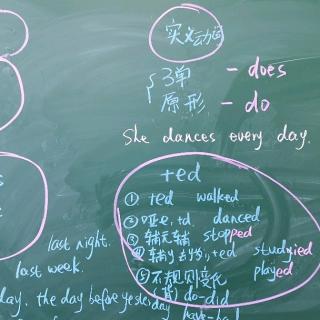 实义动词
3单 - does
原形 - do
She dances every day.
+ed
① +ed walked
② 哑e,+d danced
③ 辅元辅 stopped
④ 辅y y→i,+ed studyied
played
⑤不规则变化
do-did
last night.
last week.
day. the day before yesterday
have-had